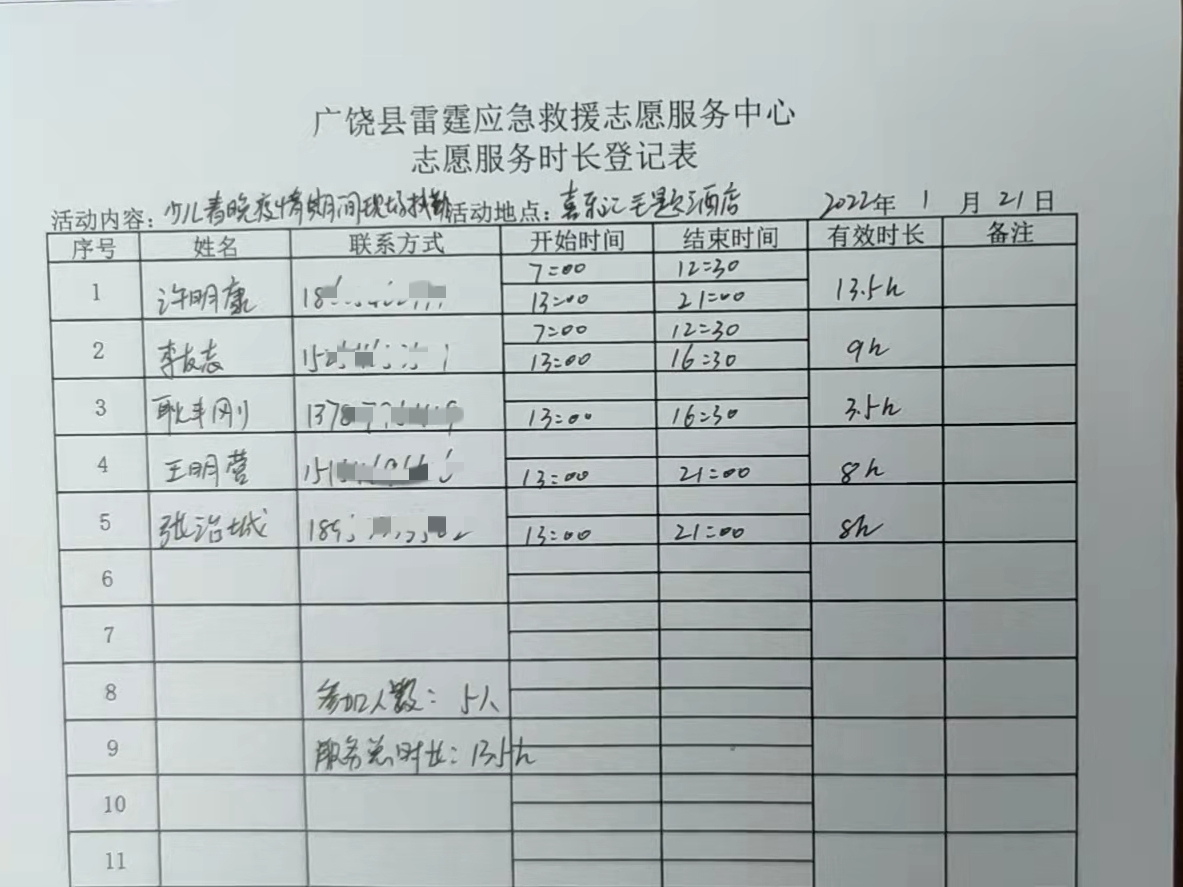 广饶县雷霆应急救援志愿服务中心
志愿服务时长登记表
活动内容：少儿春晚疫情期间现场执勤 活动地点：嘉乐汇主题酒店 2022年 1 月 21 日
序号 姓名 联系方式 开始时间 结束时间 有效时长 备注
1 许明康 18 7:00 12:30 13.5h
13:00 21:00
2 李友志 15 7:00 12:30 9h
13:00 16:30
3 耿丰刚 1378 13:00 16:30 3.5h
4 王明营 151 13:00 21:00 8h
5 张治城 189 13:00 21:00 8h
6
7
8 参加人数：5人
9 服务总时长：13.5h
10
11